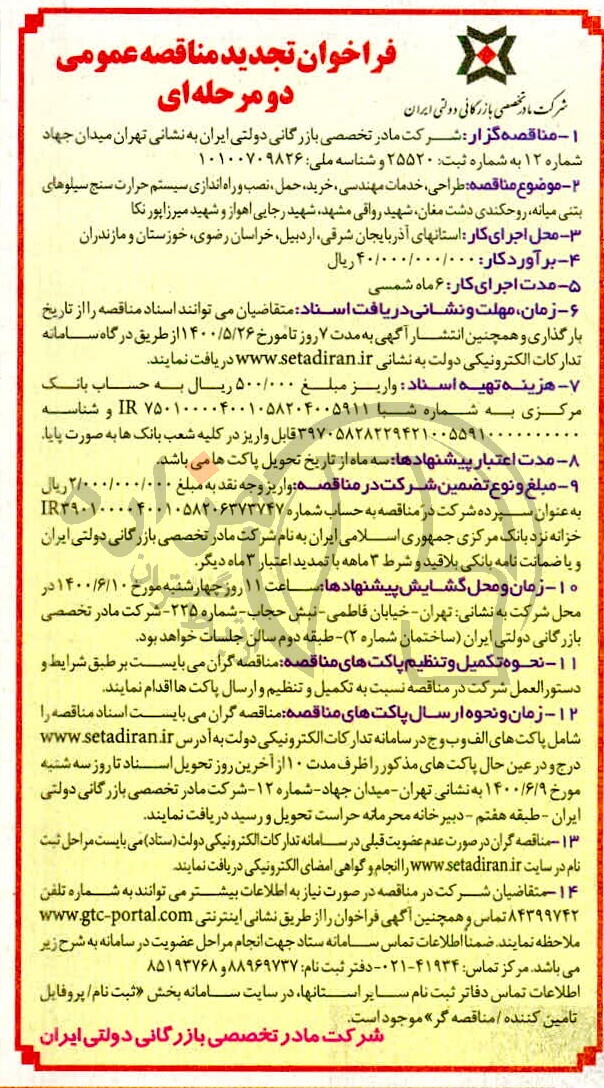 فراخوان تجدید مناقصه عمومی
دو مرحله‌ای
شرکت مادر تخصصی بازرگانی دولتی ایران
۱-مناقصه‌گزار: شرکت مادر تخصصی بازرگانی دولتی ایران به نشانی تهران میدان جهاد
شماره ۱۲ به شماره ثبت: ۲۵۵۲۰ و شناسه ملی: ۱۰۱۰۰۷۰۹۸۲۶
۲-موضوع مناقصه: طراحی، خدمات مهندسی، خرید، حمل، نصب و راه اندازی سیستم حرارت سنج سیلوهای
بتنی میانه، روحکندی دشت مغان، شهید رواقی مشهد، شهید رجایی اهواز و شهید میرزاپور نکا
۳-محل اجرای کار: استانهای آذربایجان شرقی، اردبیل، خراسان رضوی، خوزستان و مازندران
۴-برآورد کار: ۴۰/۰۰۰/۰۰۰/۰۰۰ ریال
۵-مدت اجرای کار: ۶ ماه شمسی
۶-زمان، مهلت و نشانی دریافت اسناد: متقاضیان می توانند اسناد مناقصه را از تاریخ
بارگذاری و همچنین انتشار آگهی به مدت ۷ روز تا مورخ ۱۴۰۰/۵/۲۶ از طریق درگاه سامانه
تدارکات الکترونیکی دولت به نشانی www.setadiran.ir دریافت نمایند.
۷-هزینه تهیه اسناد: واریز مبلغ ۵۰۰/۰۰۰ ریال به حساب بانک
مرکزی به شماره شبا IR ۷۵۰۱۰۰۰۰۴۰۰۱۰۵۸۲۰۴۰۰۵۹۱۱ و شناسه
۳۹۷۰۵۸۲۸۲۲۹۴۲۱۰۰۵۵۹۱۰۰۰۰۰۰۰۰۰۰ قابل واریز در کلیه شعب بانک ها به صورت پایا.
۸-مدت اعتبار پیشنهادها: سه ماه از تاریخ تحویل پاکت ها می باشد.
۹-مبلغ و نوع تضمین شرکت در مناقصه: واریز وجه نقد به مبلغ ۲/۰۰۰/۰۰۰/۰۰۰ ریال
به عنوان سپرده شرکت در مناقصه به حساب شماره IR۳۹۰۱۰۰۰۰۴۰۰۱۰۵۸۲۰۶۳۷۳۷۴۷
خزانه نزد بانک مرکزی جمهوری اسلامی ایران به نام شرکت مادر تخصصی بازرگانی دولتی ایران
و یا ضمانت نامه بانکی بلاقید و شرط ۳ ماهه با تمدید اعتبار ۳ ماه دیگر.
۱۰-زمان و محل گشایش پیشنهادها: ساعت ۱۱ روز چهارشنبه مورخ ۱۴۰۰/۶/۱۰ در
محل شرکت به نشانی: تهران-خیابان فاطمی-نبش حجاب-شماره ۲۲۵-شرکت مادر تخصصی
بازرگانی دولتی ایران (ساختمان شماره ۲)-طبقه دوم سالن جلسات خواهد بود.
۱۱-نحوه تکمیل و تنظیم پاکت های مناقصه: مناقصه گران می بایست بر طبق شرایط و
دستورالعمل شرکت در مناقصه نسبت به تکمیل و تنظیم و ارسال پاکت ها اقدام نمایند.
۱۲-زمان و نحوه ارسال پاکت های مناقصه: مناقصه گران می بایست اسناد مناقصه را
شامل پاکت های الف و ب و ج در سامانه تدارکات الکترونیکی دولت به آدرس www.setadiran.ir
درج و در عین حال پاکت های مذکور را ظرف مدت ۱۰ از آخرین روز تحویل اسناد تا روز سه شنبه
مورخ ۱۴۰۰/۶/۹ به نشانی تهران-میدان جهاد-شماره ۱۲-شرکت مادر تخصصی بازرگانی دولتی
ایران -طبقه هفتم -دبیرخانه محرمانه حراست تحویل و رسید دریافت نمایند.
۱۳-مناقصه گران در صورت عدم عضویت قبلی در سامانه تدارکات الکترونیکی دولت (ستاد) می بایست مراحل ثبت
نام در سایت www.setadiran.ir را انجام و گواهی امضای الکترونیکی دریافت نمایند.
۱۴-متقاضیان شرکت در مناقصه در صورت نیاز به اطلاعات بیشتر می توانند به شماره تلفن
۸۴۳۹۹۷۴۲ تماس و همچنین آگهی فراخوان را از طریق نشانی اینترنتی www.gtc-portal.com
ملاحظه نمایند. ضمناً اطلاعات تماس سامانه ستاد جهت انجام مراحل عضویت در سامانه به شرح زیر
می باشد. مرکز تماس: ۴۱۹۳۴-۰۲۱-دفتر ثبت نام: ۸۸۹۶۹۷۳۷ و ۸۵۱۹۳۷۶۸
اطلاعات تماس دفاتر ثبت نام سایر استانها، در سایت سامانه بخش «ثبت نام/ پروفایل
تامین کننده / مناقصه گر» موجود است.
شرکت مادر تخصصی بازرگانی دولتی ایران